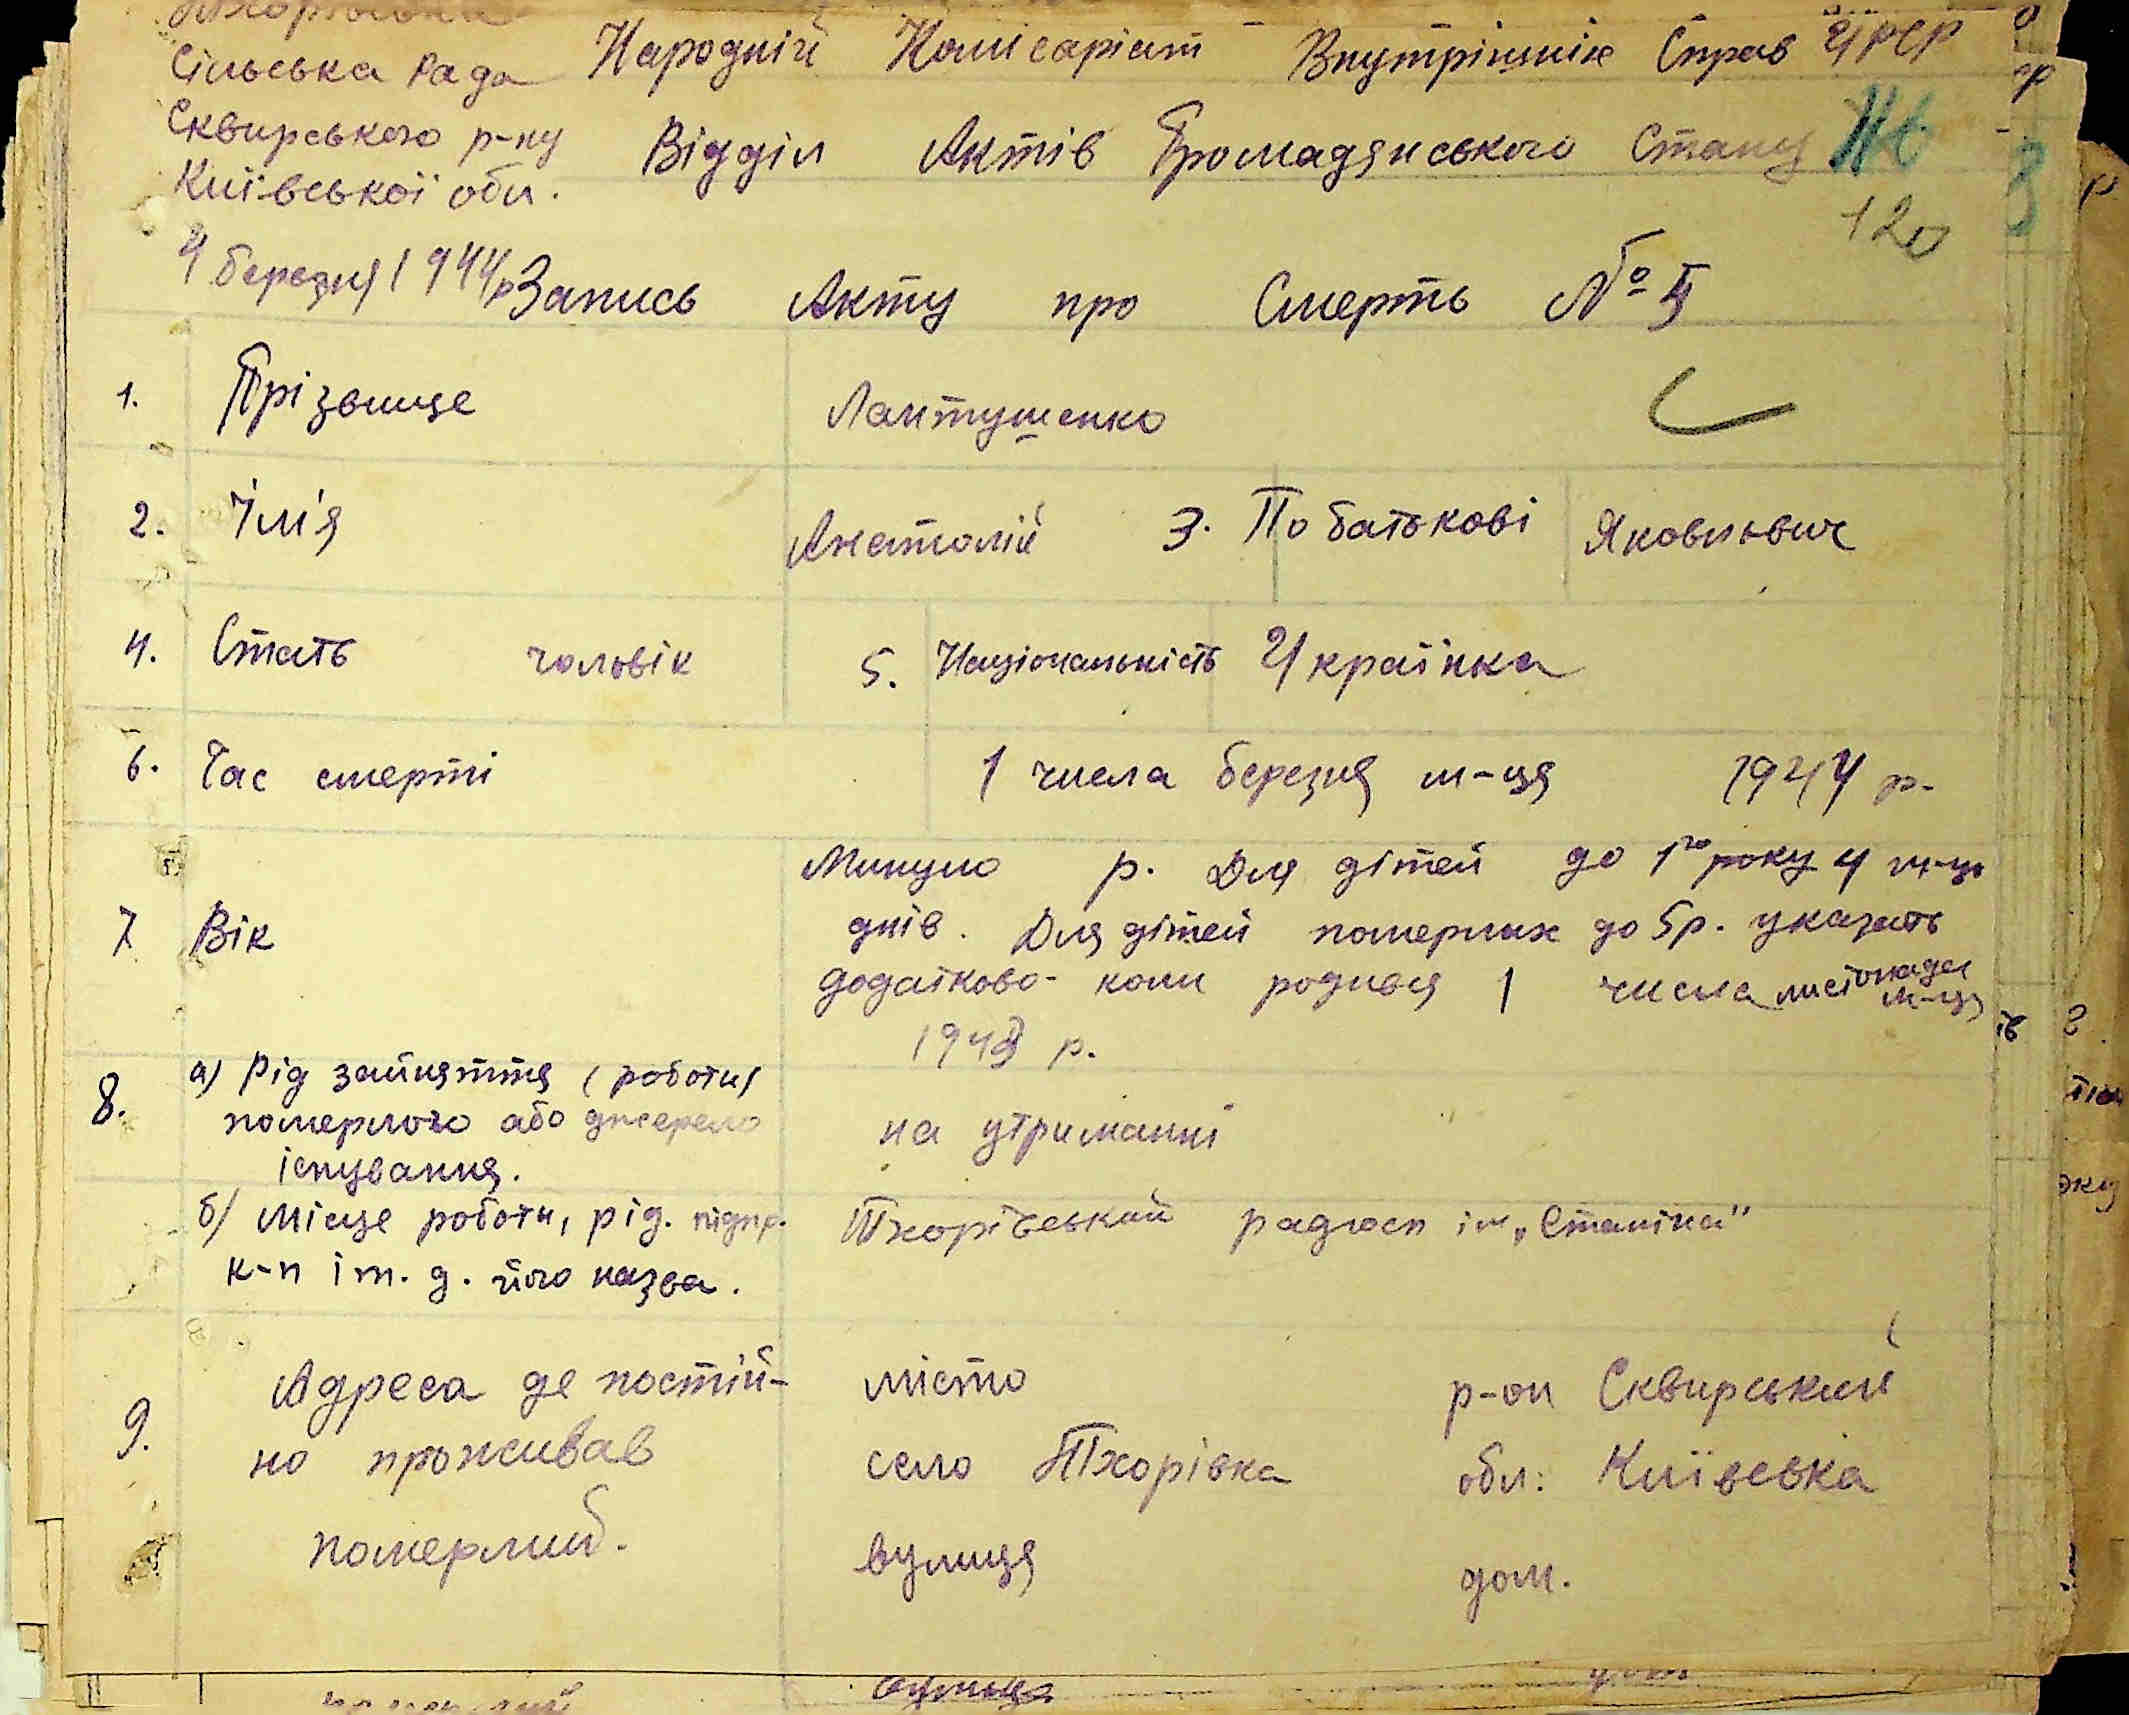 Тхорівська
Сільська Рада
Сквирського р-ну
Київської обл.
4 березня 1944 р
Народній Комісаріат Внутрішніх Справ УРСР
Відділ Актів Громадянського Стану
120
Запись Акту про Смерть № 5
1. Прізвище Лантушенко
2. Їм'я Анатолій 3. По батькові Яковльвич
4. Стать чоловік 5. Національність Українка
6. Час смерті 1 числа березня м-ця 1944 р.
7. Вік
Минуло р. Для дітей до 1го року 4 м-ці
днів. Для дітей померлих до 5 р. указать
додатково- коли родився 1 числа листопада м-ця
1943 р.
8. а) Рід зайняття (роботи)
померлого або джерело
існування.
на утриманні
б) Місце роботи, рід. підпр.
к-п і т. д. його назва.
Тхорівський радгосп ім „Сталіна"
9. Адреса де постій-
но проживав
померлий.
місто р-он Сквирський
село Тхорівка обл: Київська
вулиця дом.
вулиця